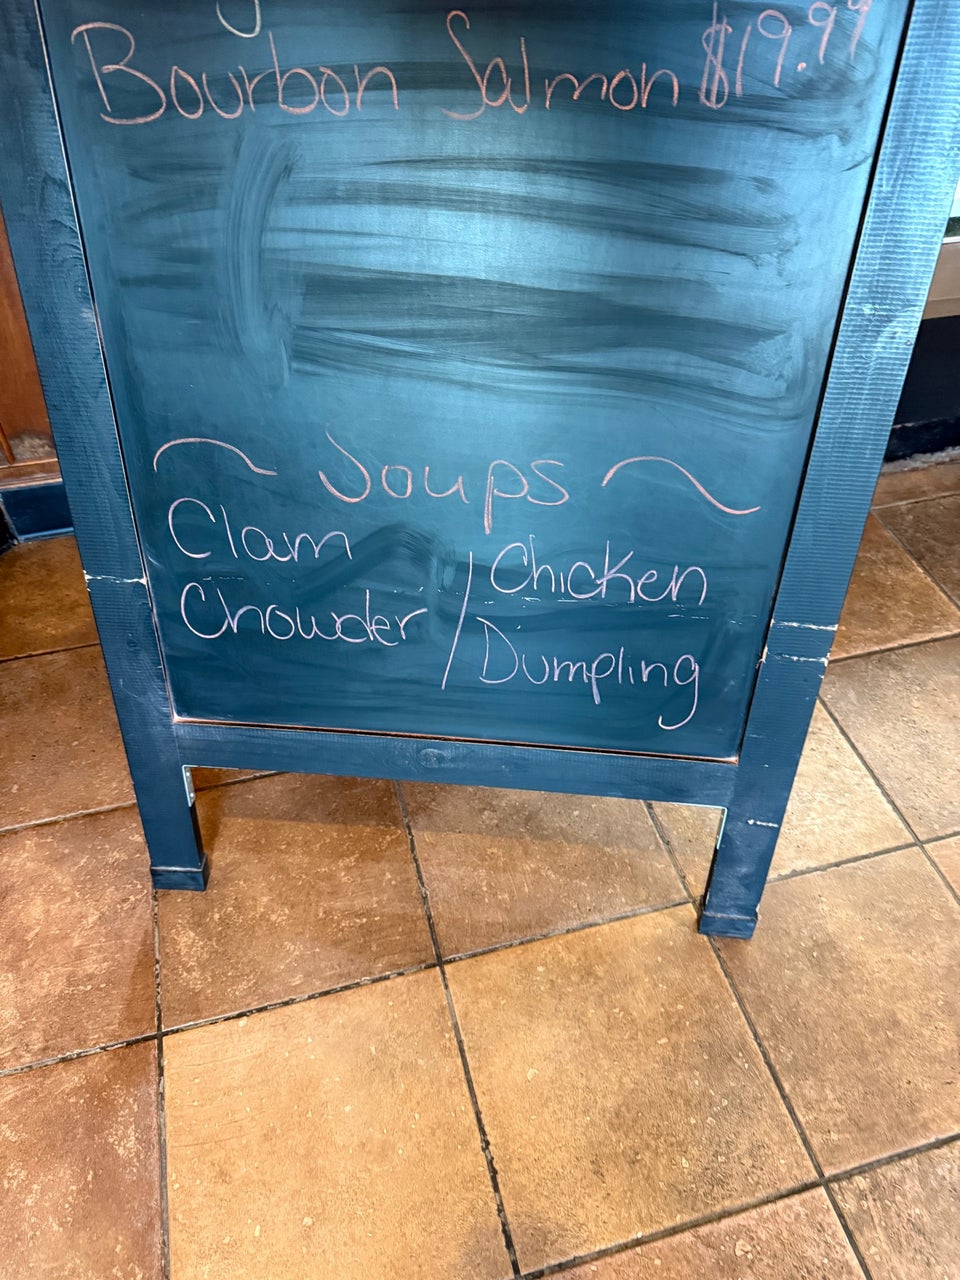 Bourbon Salmon $19.99
Soups
Clam
Chowder / Chicken
Dumpling